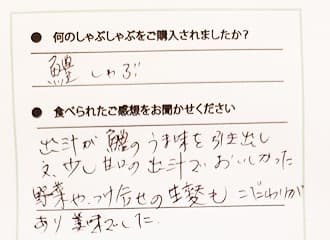 ● 何のしゃぶしゃぶをご購入されましたか？
鱧 しゃぶ
● 食べられたご感想をお聞かせください
出汁が 鱧のうま味を引き出し
又、少し甘口の出汁でおいしかった
野菜や、つけ合せの生麩も こだわりが
あり 美味でした.